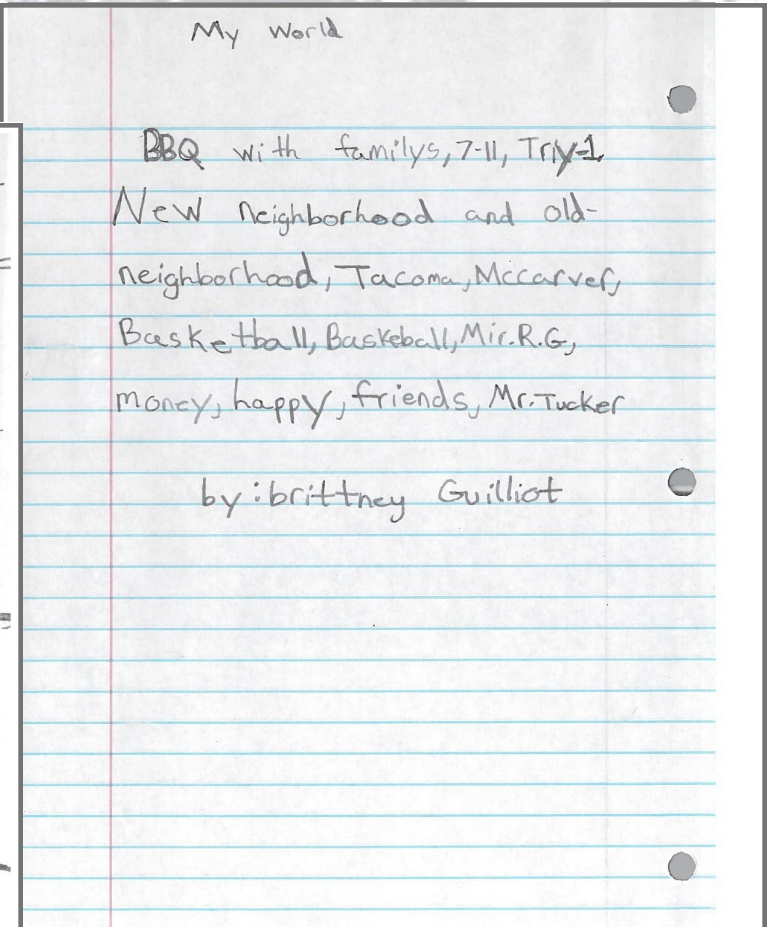 My World
BBQ with familys, 7-11, Triy-1,
New neighborhood and old-
neighborhood, Tacoma, Mccarver,
Basketball, Baskeball, Mir.R.G,
money, happy, friends, Mr.Tucker
by:brittney Guilliot